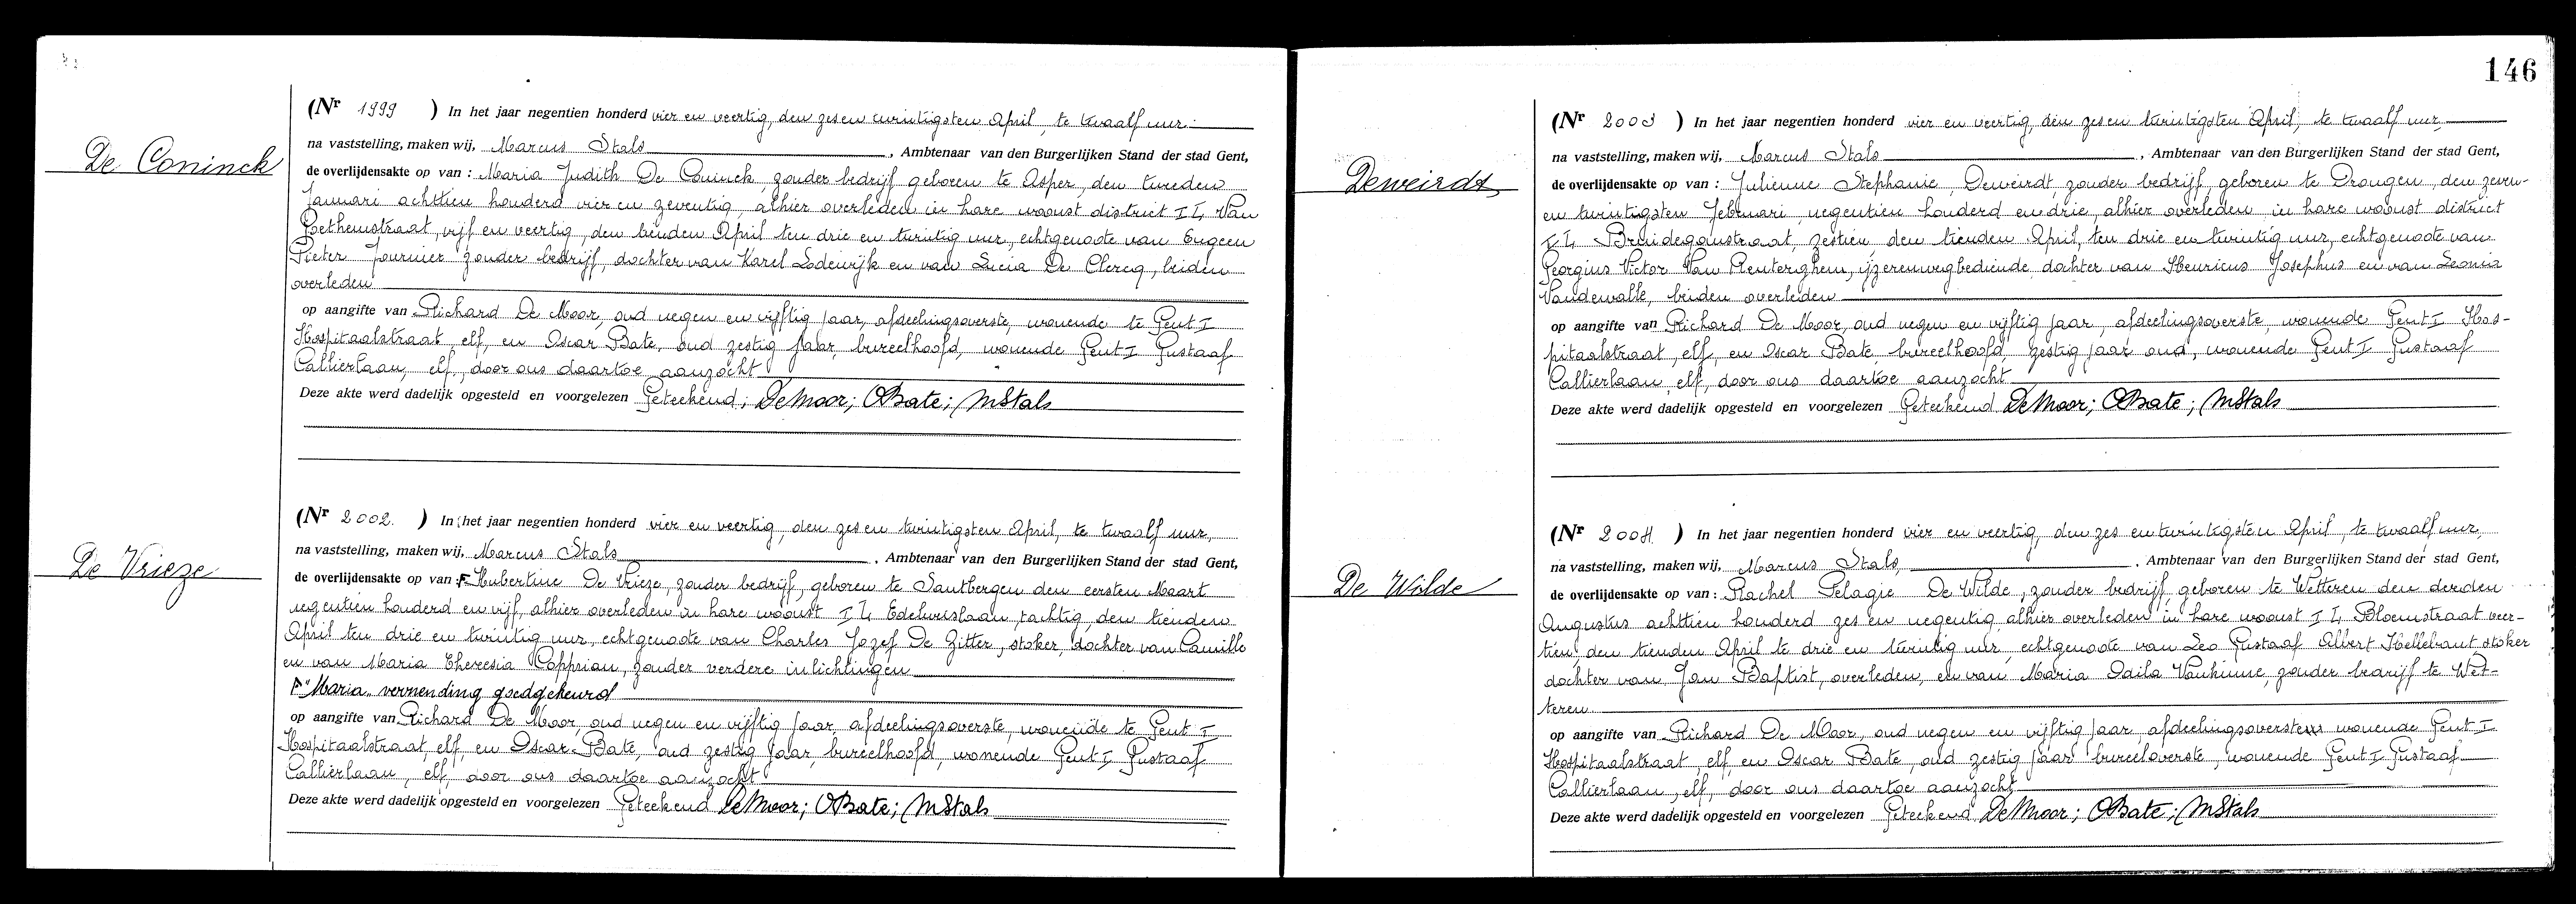 De Coninck
(Nr 1999 ) In het jaar negentien honderd vier en veertig, den zes en twintigsten April, te twaalf uur
na vaststelling, maken wij, Marcus Stals, Ambtenaar van den Burgerlijken Stand der stad Gent,
de overlijdensakte op van : Maria Judith De Coninck, zonder bedrijf geboren te Asper, den tweeden
Januari achttien honderd vier en zeventig, alhier overleden in hare woonst district I L, Van
Bethemstraat, vijf en veertig, den tienden April ten drie en twintig uur, echtgenoote van Eugeen
Pieter Fournier zonder bedrijf, dochter van Karel Lodewijk en van Lucia De Clercq, beiden
overleden
op aangifte van Richard De Moor, oud negen en vijftig jaar, afdeelingsoverste, wonende te Gent I
Hospitaalstraat, elf, en Oscar Bate, oud zestig jaar, bureelhoofd, wonende Gent I Gustaaf
Callierlaan, elf, door ons daartoe aanzocht
Deze akte werd dadelijk opgesteld en voorgelezen Geteekend; De Moor; OBate; MStals
De Vrieze
(Nr 2002. ) In het jaar negentien honderd vier en veertig, den zes en twintigsten April, te twaalf uur,
na vaststelling, maken wij, Marcus Stals, Ambtenaar van den Burgerlijken Stand der stad Gent,
de overlijdensakte op van : Hubertine De Vrieze, zonder bedrijf, geboren te Santbergen den eersten Maart
negentien honderd en vijf, alhier overleden in hare woonst I L, Edelweislaan, tachtig, den tienden
April ten drie en twintig uur, echtgenoote van Charles Jozef De Zitter, stoker, dochter van Camille
en van Maria Theresia Copprian, zonder verdere inlichtingen
F "Maria" verzending goedgekeurd
op aangifte van Richard De Moor, oud negen en vijftig jaar, afdeelingsoverste, wonende te Gent I
Hospitaalstraat, elf, en Oscar Bate, oud zestig jaar, bureelhoofd, wonende Gent I, Gustaaf
Callierlaan, elf, door ons daartoe aanzocht
Deze akte werd dadelijk opgesteld en voorgelezen Geteekend De Moor; OBate; MStals
146
Deweirdt
(Nr 2003 ) In het jaar negentien honderd vier en veertig, den zes en twintigsten April, te twaalf uur,
na vaststelling, maken wij, Marcus Stals, Ambtenaar van den Burgerlijken Stand der stad Gent,
de overlijdensakte op van : Julienne Stephanie, Deweirdt, zonder bedrijf, geboren te Drongen, den zeven-
en twintigsten Februari, negentien honderd en drie, alhier overleden in hare woonst district
I L, Bruidegomstraat, zestien den tienden April, ten drie en twintig uur, echtgenoote van
Georgius Victor Van Renterghem, ijzerenwegbediende, dochter van Henricus Josephus en van Leonia
Vandewalle, beiden overleden
op aangifte van Richard De Moor, oud negen en vijftig jaar, afdeelingsoverste, wonende Gent I Hos-
pitaalstraat, elf, en Oscar Bate bureelhoofd, zestig jaar oud, wonende Gent I Gustaaf
Callierlaan, elf, door ons daartoe aanzocht
Deze akte werd dadelijk opgesteld en voorgelezen Geteekend De Moor; OBate; MStals
De Wilde
(Nr 2004 ) In het jaar negentien honderd vier en veertig, den zes en twintigsten April, te twaalf uur,
na vaststelling, maken wij, Marcus Stals, Ambtenaar van den Burgerlijken Stand der stad Gent,
de overlijdensakte op van : Rachel Pelagie De Wilde, zonder bedrijf geboren te Wetteren den derden
Augustus achttien honderd zes en negentig, alhier overleden in hare woonst I L, Bloemstraat veer-
tien, den tienden April te drie en twintig uur, echtgenoote van Leo Gustaaf Albert Hellebaut stoker
dochter van Jan Baptist, overleden, en van Maria Odila Vankimne, zonder bedrijf te Wet-
teren
op aangifte van Richard De Moor, oud negen en vijftig jaar, afdeelingsoverste wonende Gent I
Hospitaalstraat, elf, en Oscar Bate, oud zestig jaar bureeloverste, wonende Gent I Gustaaf
Callierlaan, elf, door ons daartoe aanzocht
Deze akte werd dadelijk opgesteld en voorgelezen Geteekend De Moor; OBate; MStals